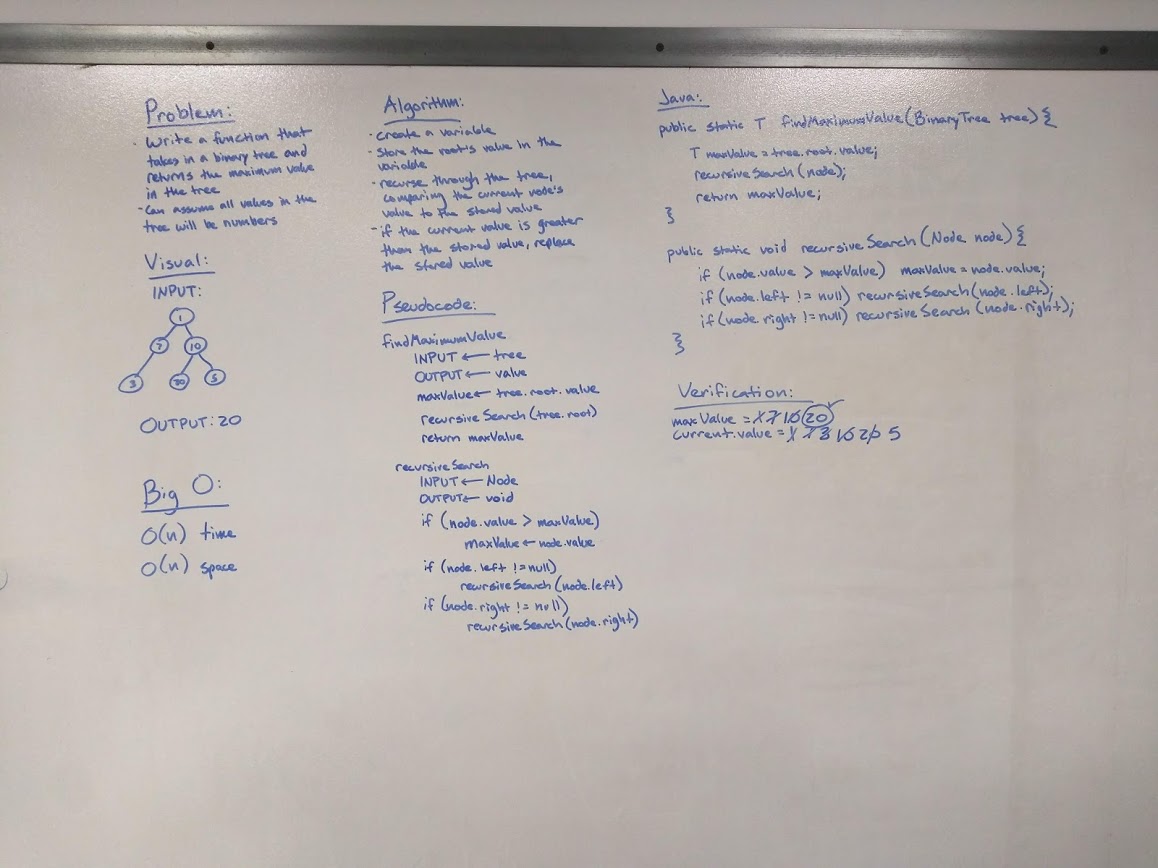 Problem:
· Write a function that
takes in a binary tree and
returns the maximum value
in the tree
- Can assume all values in the
tree will be numbers
Visual:
INPUT:
1
7 10
3 20 5
OUTPUT: 20
Big O:
O(n) time
O(n) space
Algorithm:
· create a variable
· Store the root's value in the
variable
· recurse through the tree,
comparing the current node's
value to the stored value
- if the current value is greater
than the stored value, replace
the stored value
Pseudocode:
findMaximumValue
INPUT ← tree
OUTPUT ← value
maxValue ← tree.root.value
recursiveSearch(tree.root)
return maxValue
recursiveSearch
INPUT ← Node
OUTPUT ← void
if (node.value > maxValue)
maxValue ← node.value
if (node.left != null)
recursiveSearch(node.left)
if (node.right != null)
recursiveSearch(node.right)
Java:
public static T findMaximumValue(BinaryTree tree) {
T maxValue = tree.root.value;
recursiveSearch(node);
return maxValue;
}
public static void recursiveSearch(Node node) {
if (node.value > maxValue) maxValue = node.value;
if (node.left != null) recursiveSearch(node.left);
if (node.right != null) recursiveSearch(node.right);
}
Verification:
maxValue = 1 7 10 20 ✓
current.value = 1 7 3 10 20 5